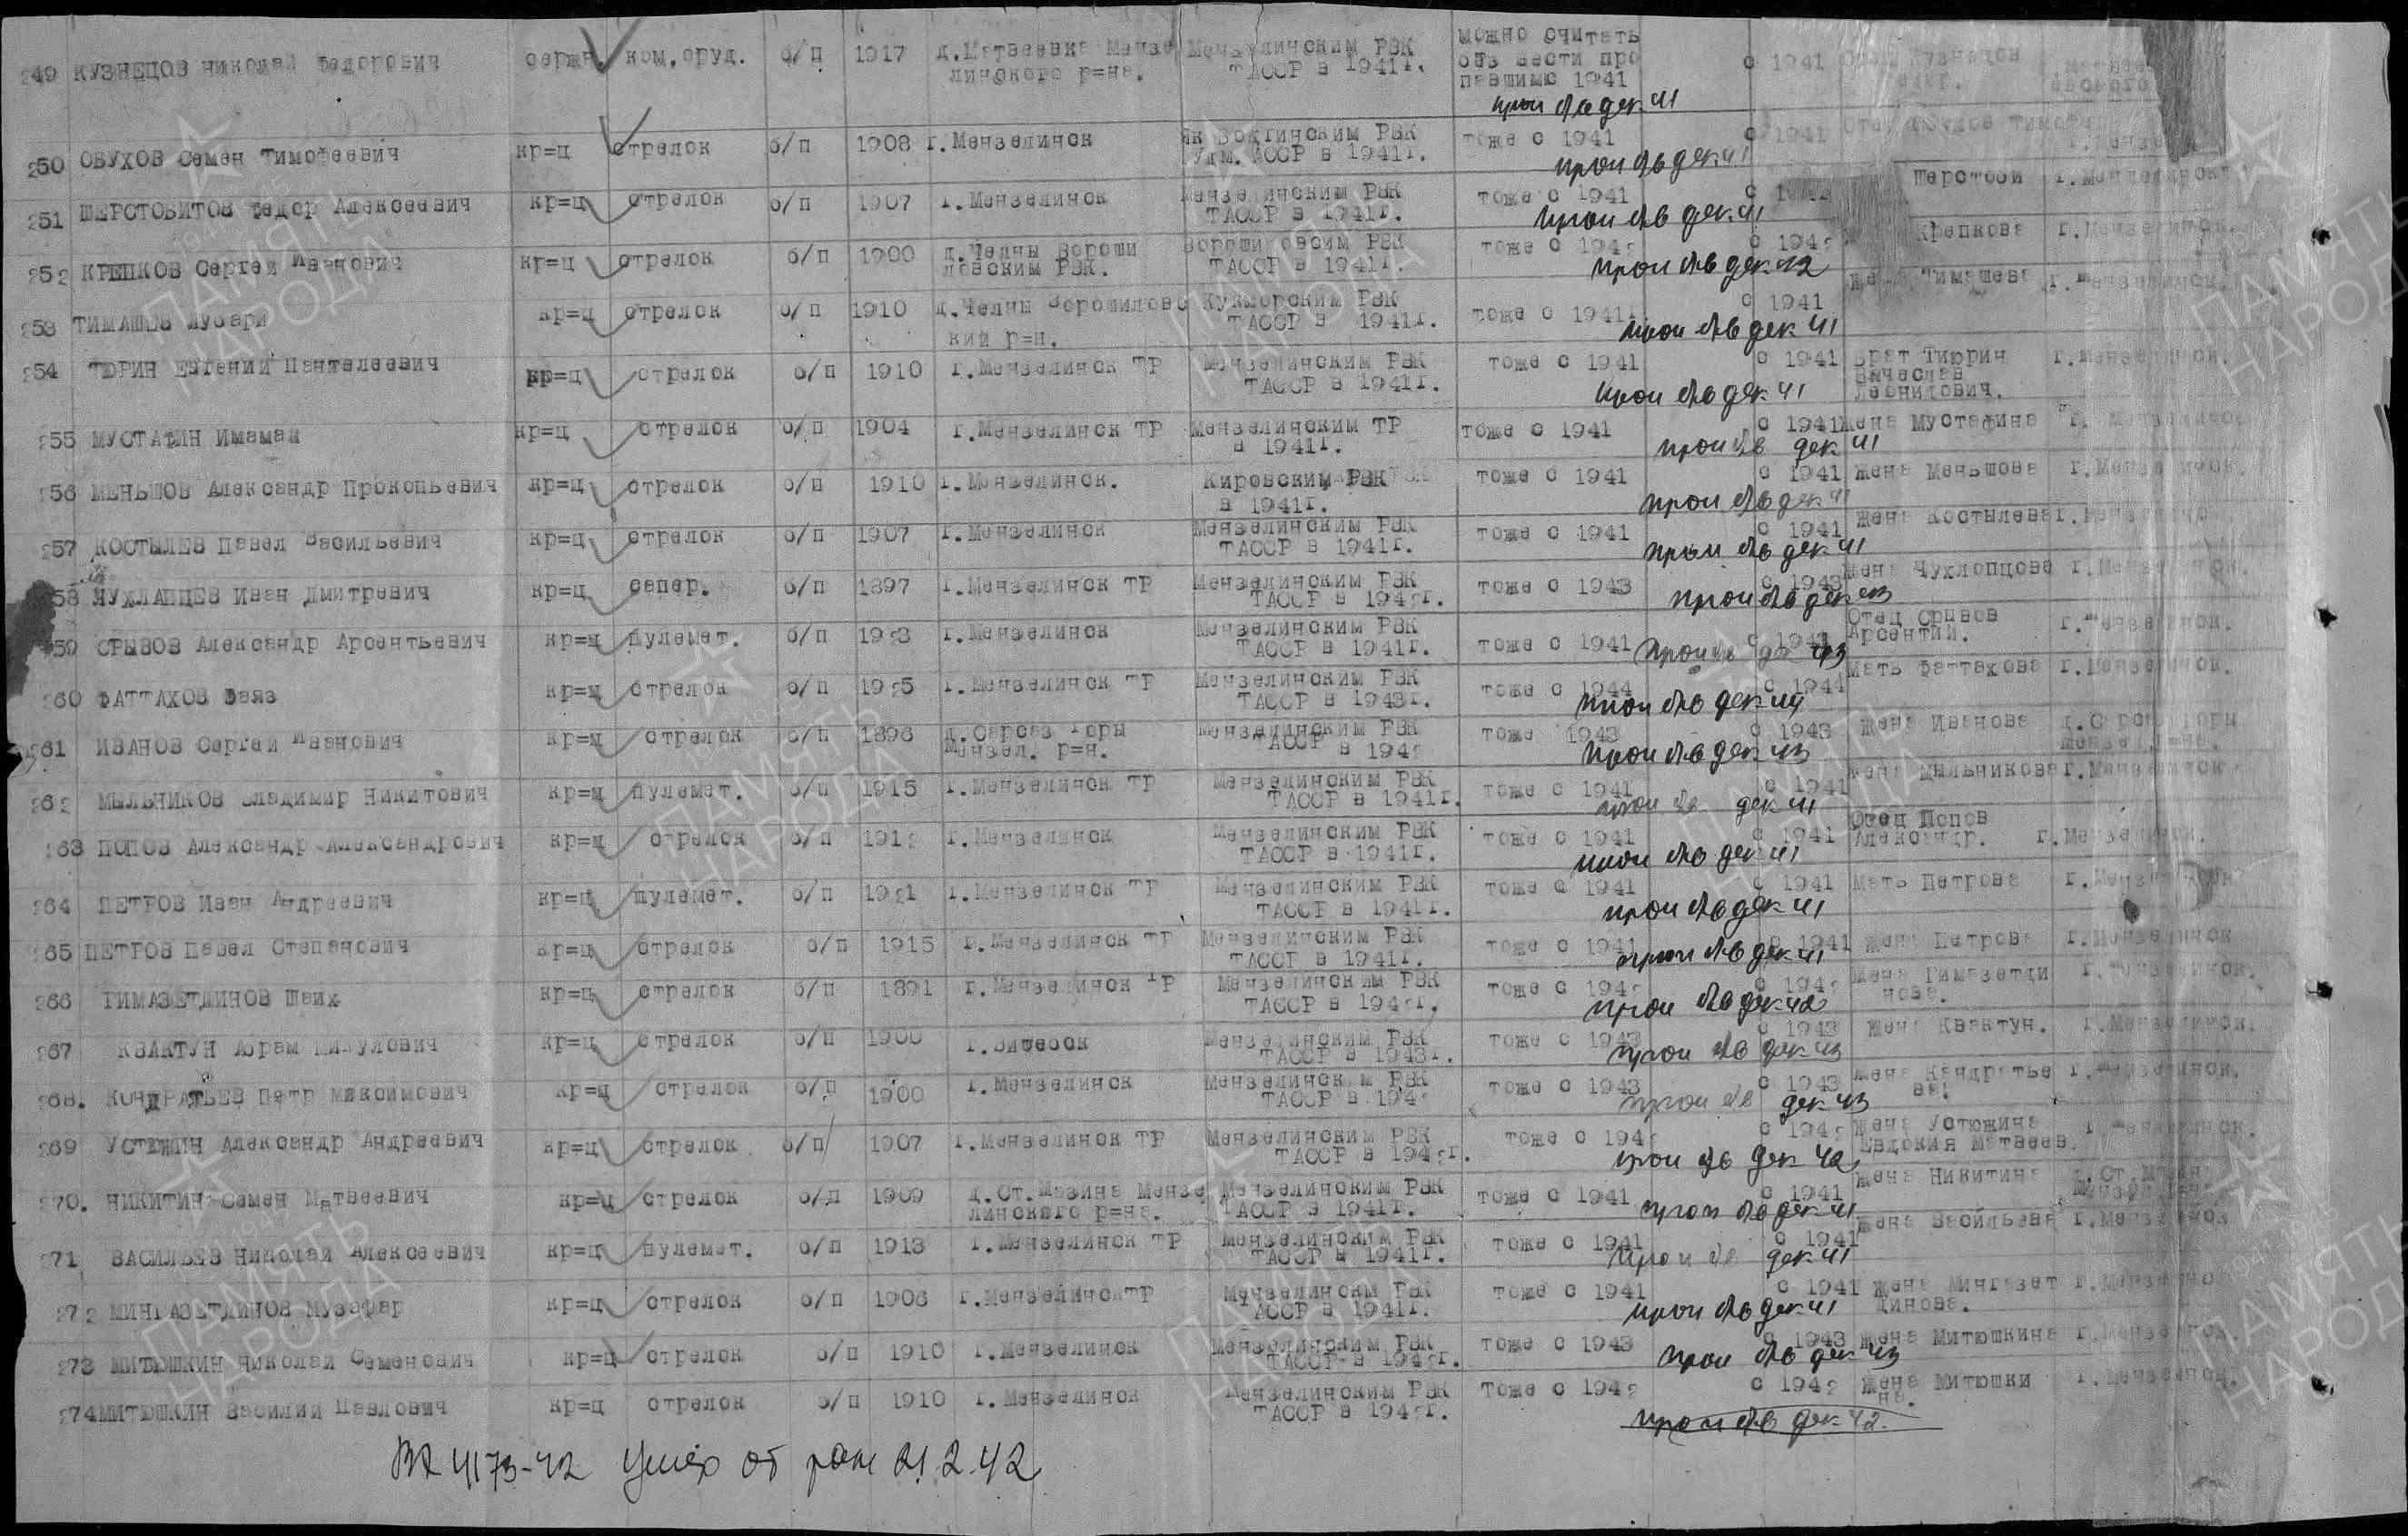 249 КУЗНЕЦОВ Николай Федорович сержн. ком.оруд. б/п 1917 д.Матвеевка Мензе Мензелинским РВК можно считать
линского р=на. ТАССР в 1941г. без вести про с 1941 Отец Кузнецов
павшимс 1941
проп б/в дек 41
250 ОБУХОВ Семен Тимофеевич кр=ц стрелок б/п 1908 г.Мензелинск РВК тоже с 1941 с 1941
Удм. АССР в 1941г. проп б/в дек 41
251 ШЕРСТОБИТОВ Федор Алексеевич кр=ц стрелок б/п 1907 г.Мензелинск Мензелинским РВК тоже с 1941 Шерстоби г.Мензелинск.
ТАССР в 1941г. проп б/в дек 41
252 КРЕПКОВ Сергей Иванович кр=ц стрелок б/п 1900 д.Челны Вороши РВК тоже с 1942 с 1942 Крепкова г.Мензелинск.
ловским РВК. ТАССР в 1941г. проп б/в дек 42
253 ТИМАШЕВ кр=ц стрелок б/п 1910 д.Челны Ворошиловс Кукморским РВК тоже с 1941г. с 1941 Жена Тимашева г.Мензелинск.
кий р=н. ТАССР в 1941г. проп б/в дек 41
254 ТЮРИН Евгений Пантелеевич кр=ц стрелок б/п 1910 г.Мензелинск ТР Мензелинским РВК тоже с 1941 с 1941 Брат Тюрин г.Мензелинск.
ТАССР в 1941г. проп б/в дек 41 Вячеслав
Леонидович.
255 МУСТАФИН Имамай кр=ц стрелок б/п 1904 г.Мензелинск ТР Мензелинским ТР тоже с 1941 с 1941 Жена Мустафина г. Мензелинск
в 1941г. проп б/в дек 41
256 МЕНЬШОВ Александр Прокопьевич кр=ц стрелок б/п 1910 г.Мензелинск. Кировским РВК тоже с 1941 с 1941 Жена Меньшова г.Мензелинск.
в 1941г. проп б/в дек 41
257 КОСТЫЛЕВ Павел Васильевич кр=ц стрелок б/п 1907 г.Мензелинск Мензелинским РВК тоже с 1941 с 1941 Жена Костылева г.Мензелинск
ТАССР в 1941г. проп б/в дек 41
258 ЧУХЛАПЦЕВ Иван Дмитревич кр=ц сапер. б/п 1897 г.Мензелинск ТР Мензелинским РВК тоже с 1943 с 1943 Жена Чухлопцова г.Мензелинск.
ТАССР в 1942г. проп б/в дек 43
259 СРЫВОВ Александр Арсентьевич кр=ц пулемет. б/п 1923 г.Мензелинск Мензелинским РВК тоже с 1941 с 1941 Отец Срывов г.Мензелинск.
ТАССР в 1941г. проп б/в дек 43 Арсентий.
260 ФАТТАХОВ Фаяз кр=ц стрелок б/п 1925 г.Мензелинск ТР Мензелинским РВК тоже с 1944 с 1944 Мать Фаттахова г.Мензелинск.
ТАССР в 1943г. проп б/в дек 44
261 ИВАНОВ Сергей Иванович кр=ц стрелок б/п 1896 д.Сарсаз Горы Мензелинским РВК тоже 1943 с 1943 Жена Иванова д.Сарсаз Горы
Мензел. р=н. ТАССР в 1942 проп б/в дек 43 Мензел.р=на.
262 МЫЛЬНИКОВ Владимир Никитович кр=ц пулемет. б/п 1915 г.Мензелинск ТР Мензелинским РВК тоже с 1941 с 1941 Жена Мыльникова г.Мензелинск
ТАССР в 1941г. проп б/в дек 41
263 ПОПОВ Александр Александрович кр=ц стрелок б/п 1912 г.Мензелинск Мензелинским РВК тоже с 1941 с 1941 Отец Попов
ТАССР в 1941г. проп б/в дек 41 Александр. г.Мензелинск.
264 ПЕТРОВ Иван Андреевич кр=ц пулемет. б/п 1921 г.Мензелинск ТР Мензелинским РВК тоже с 1941 с 1941 Мать Петрова г.Мензелинск
ТАССР в 1941г. проп б/в дек 41
265 ПЕТРОВ Павел Степанович кр=ц стрелок б/п 1915 г.Мензелинск ТР Мензелинским РВК тоже с 1941 с 1941 Жена Петрова г.Мензелинск
ТАССР в 1941г. проп б/в дек 41
266 ГИМАЗЕТДИНОВ Шаих кр=ц стрелок б/п 1891 г.Мензелинск ТР Мензелинским РВК тоже с 1942 с 1942 Жена Гимазетди г.Мензелинск.
ТАССР в 1942г. проп б/в дек 42 нова.
267 КВАКТУН Абрам кр=ц стрелок б/п 1900 г.Витебск Мензелинским РВК тоже с 1943 с 1943 Жена Квактун. г.Мензелинск.
ТАССР в 1943г. проп б/в дек 43
268. КОНДРАТЬЕВ Петр Максимович кр=ц стрелок б/п 1900 г.Мензелинск Мензелинским РВК тоже с 1943 с 1943 Жена Кандратье г.Мензелинск.
ТАССР в 1942 проп б/в дек 43 ва.
269 УСТЮЖИН Александр Андреевич кр=ц стрелок б/п 1907 г.Мензелинск ТР Мензелинским РВК тоже с 1942 с 1942 Жена Устюжина г.Мензелинск.
ТАССР в 1942г. проп б/в дек 42 Евдокия Матвеев.
270. НИКИТИН Семен Матвеевич кр=ц стрелок б/п 1909 д.Ст.Мазина Мензе Мензелинским РВК тоже с 1941 с 1941 Жена Никитина д.Ст.Мазина
линского р=на. ТАССР в 1941г. проп б/в дек 41
271 ВАСИЛЬЕВ Николай Алексеевич кр=ц пулемет. б/п 1913 г.Мензелинск ТР Мензелинским РВК тоже с 1941 с 1941 Жена Васильева г.Мензелинск
ТАССР в 1941г. проп б/в дек 41
272 МИНГАЗЕТДИНОВ Музафар кр=ц стрелок б/п 1906 г.МензелинскТР Мензелинским РВК тоже с 1941 с 1941 Жена Мингазет г.Мензелинс
АССР в 1941г. проп б/в дек 41 динова.
273 МИТЮШКИН Николай Семенович кр=ц стрелок б/п 1910 г.Мензелинск Мензелинским РВК тоже с 1943 с 1943 Жена Митюшкина г.Мензелинск.
ТАССР в 1942г. проп б/в дек 43
274 МИТЮШКИН Василий Павлович кр=ц стрелок б/п 1910 г.Мензелинск Мензелинским РВК тоже с 1942 с 1942 Жена Митюшки г.Мензелинск.
ТАССР в 1942г. на.
проп б/в дек 42.
4173-42 Умер от ран 21.2.42
ПАМЯТЬ
НАРОДА